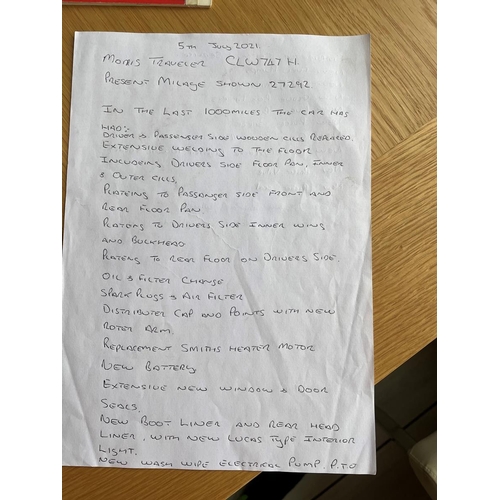 5th July 2021.
Morris Traveler CLW747H.
Present Milage shown 27292.
In the last 1000miles the car has
had:-
Driver & Passenger side wooden cills replaced.
Extensive welding to the floor
Includeing, drivers side floor pan, inner
& outer cills,
Plateing to passanger side front and
rear floor pan.
Plateing to drivers side inner wing
and buckhead
Plateing to rear floor on drivers side.
Oil & filter change
Spark plugs & air filter
Distributer cap and points with new
roter arm.
Replacement Smiths heater motor
New battery
Extensive new window & door
seals.
New boot liner and rear head
liner, with new Lucas type interior
light.
New wash wipe electrical pump. P.T.O